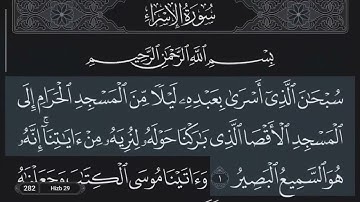 سُورَةُ الإِسْرَاءِ
بِسْمِ اللَّهِ الرَّحْمَٰنِ الرَّحِيمِ
سُبْحَانَ الَّذِي أَسْرَىٰ بِعَبْدِهِ لَيْلًا مِّنَ الْمَسْجِدِ الْحَرَامِ إِلَى
الْمَسْجِدِ الْأَقْصَا الَّذِي بَارَكْنَا حَوْلَهُ لِنُرِيَهُ مِنْ ءَايَاتِنَا ۚ إِنَّهُ
هُوَ السَّمِيعُ الْبَصِيرُ ١ وَءَاتَيْنَا مُوسَى الْكِتَابَ وَجَعَلْنَاهُ
282 Hizb 29